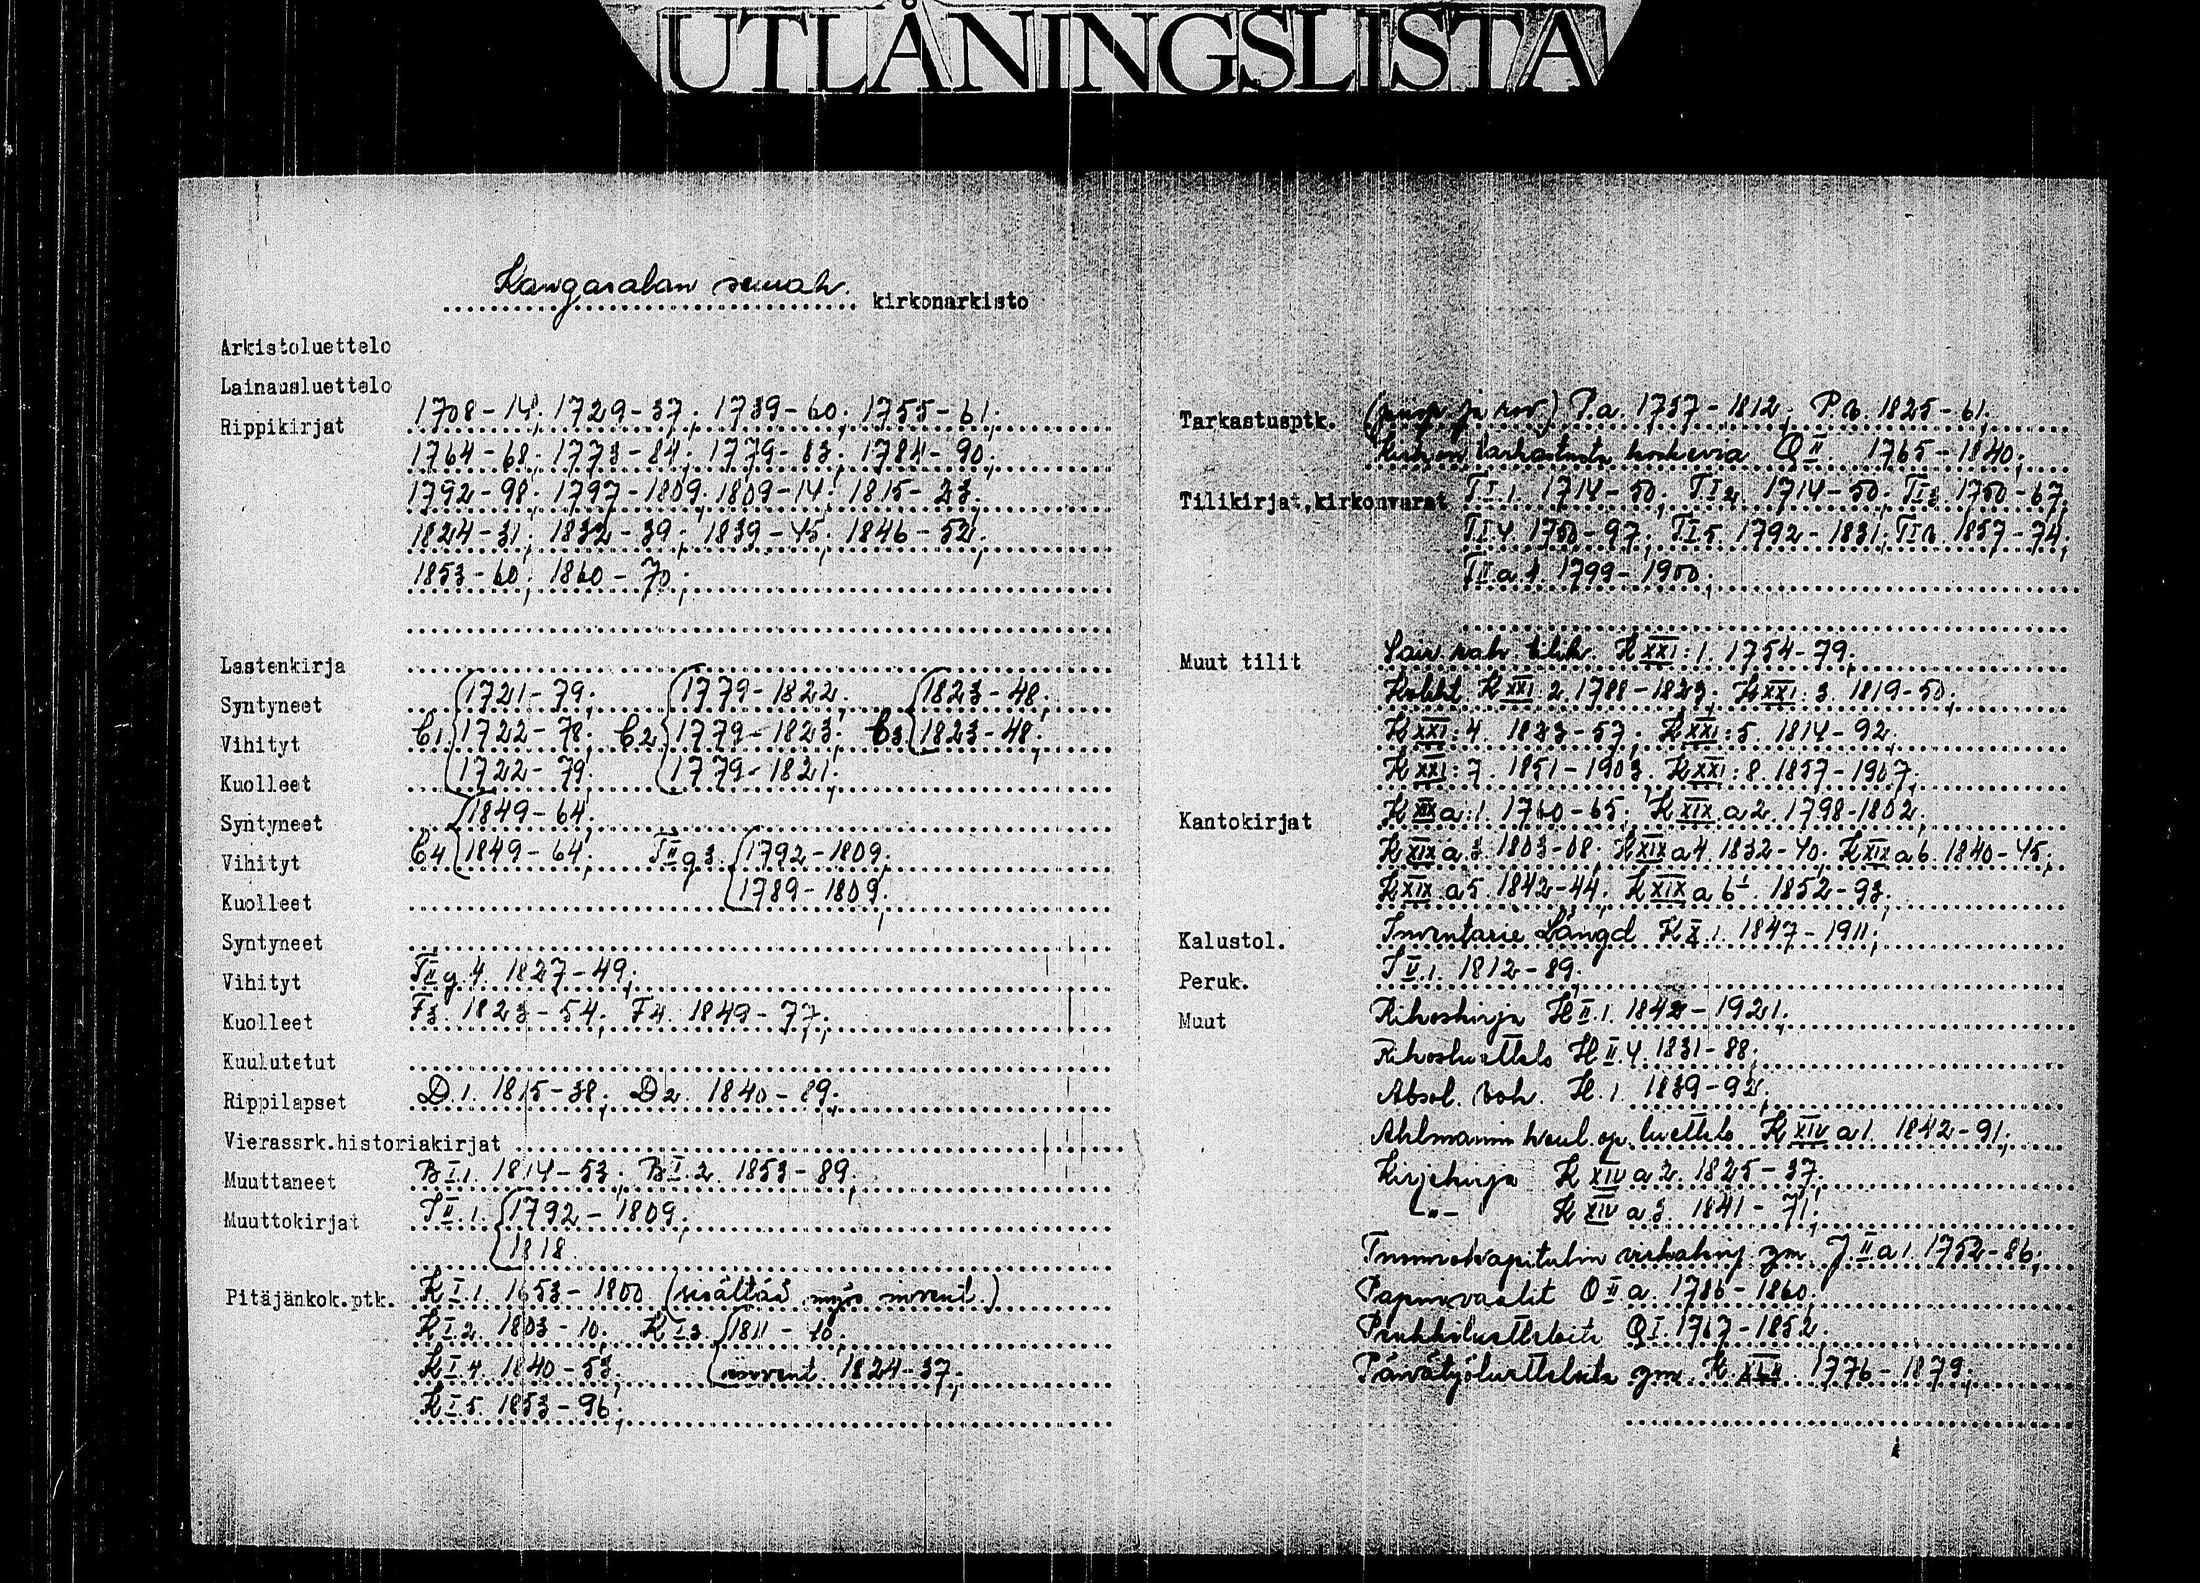 UTLÅNINGSLISTA
Kangasalan seurak. kirkonarkisto
Arkistoluettelo
Lainausluettelo
Rippikirjat 1708-14; 1729-37; 1739-60; 1755-61;
1764-68; 1773-84; 1779-83; 1784-90;
1792-98; 1797-1809; 1809-14; 1815-23;
1824-31; 1832-39; 1839-45; 1846-52;
1853-60; 1860-70;
Lastenkirja
Syntyneet 1721-79; 1779-1822; 1823-48;
Vihityt C1 1722-78; C2 1779-1823; C3 1823-48;
Kuolleet 1722-79; 1779-1821;
Syntyneet 1849-64;
Vihityt C4 1849-64; TII g 3. 1792-1809;
Kuolleet 1789-1809;
Syntyneet
Vihityt TII g.4. 1827-49;
Kuolleet F3. 1823-54; F4. 1849-77;
Kuulutetut
Rippilapset D.1. 1815-38; D2. 1840-89;
Vierassrk.historiakirjat
Muuttaneet BI.1. 1814-53; BI.2. 1853-89;
Muuttokirjat II.1. 1792-1809;
1818.
Pitäjänkok.ptk. KI.1. 1653-1800 (sisältää myös invent.)
KI.2. 1803-10; KI3. 1811-40;
KI.4. 1840-53; invent 1824-37;
KI.5. 1853-96;
Tarkastusptk. ja rov) P.a. 1757-1812; P.b. 1825-61;
tarkastusta koskevia QII. 1765-1840;
Tilikirjat,kirkonvarat TI.1. 1714-50; TI2. 1714-50; TI3. 1750-67;
TI4. 1750-97; TI5. 1792-1831; TI6. 1857-74;
TII a 1. 1799-1900;
Muut tilit Sair. tilik. KXXI:1. 1754-79;
Kolekt KXXI 2. 1788-1823; KXXI:3. 1819-50;
KXXI:4. 1833-57; KXXI:5. 1814-92;
KXXI:7. 1851-1903; KXXI:8. 1857-1907;
Kantokirjat KXIX a:1. 1760-65; KXIX a2. 1798-1802;
KXIX a.3. 1803-08; KXIX a4. 1832-40; KXIX a6. 1840-45;
KXIX a5. 1842-44; KXIX a 6¹. 1852-93;
Kalustol. Inventarie Längd KX.1. 1847-1911;
Peruk. IV.1. 1812-89;
Muut Rikoskirja HII.1. 1842-1921;
Rikosluettelo HII.4. 1831-88;
Absol. H.1. 1839-92;
Ahlmannin koul. op. luettelo KXIV a1. 1842-91;
Kirjekirja KXIV a2. 1825-37;
-"- KXIV a3. 1841-71;
Tuomiokapitulin virkakirj. ym. J.II a1. 1752-86;
Papinvaalit OII.a. 1786-1860;
Penkkiluetteloita QI. 1767-1852;
Päivätyöluetteloita ym. K 1776-1879;